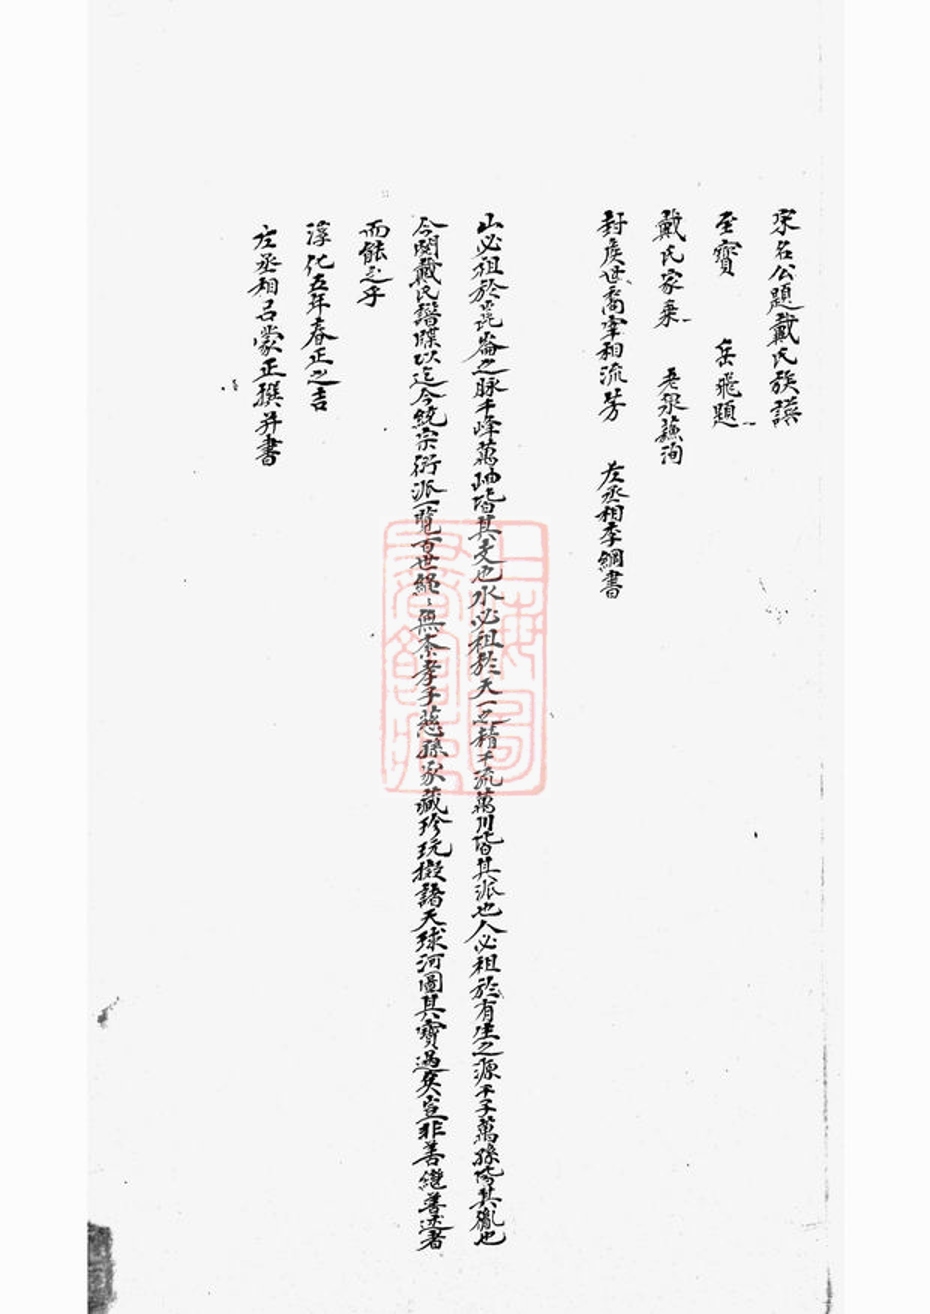 宋名公題戴氏族譜
至寶 岳飛題
戴氏家乗 老泉蘓洵
封侯世裔宰相流芳 左丞相李綱書
山必祖於崑崙之脉千峰萬岫皆其支也水必祖於天一之精千流萬川皆其派也人必祖於有生之源千子萬孫皆其胤也
今閱戴氏譜牒以迄今統宗衍派一覽百世繩〻無紊孝子慈孫家藏珍玩擬諸天球河圖其寶過矣豈非善繼善述者
而能之乎
淳化五年春正之吉
左丞相呂蒙正撰并書
上海圖書館藏